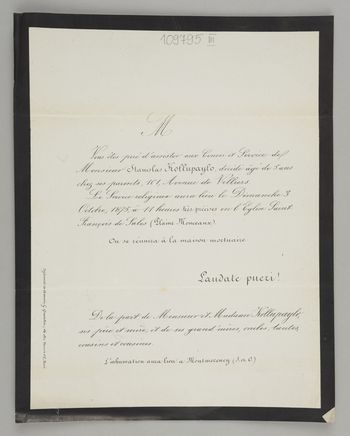 109795 III
M
Vous êtes prié d'assister aux Convoi et Service de
Monsieur Stanislas Kollupaylo, décédé âgé de 5 ans
chez ses parents, 101, Avenue de Villiers.
Le Service religieux aura lieu le Dimanche 3
Octobre, 1875, à 11 heures très précises en l'Eglise Saint
François de Sales (Plaine Monceaux).
On se réunira à la maison mortuaire
Laudate pueri!
De la part de Monsieur et Madame Kollupaylo,
ses père et mère, et de ses grand'mères, oncles, tantes,
cousins et cousines.
L'inhumation aura lieu à Montmorency (S. et O.)